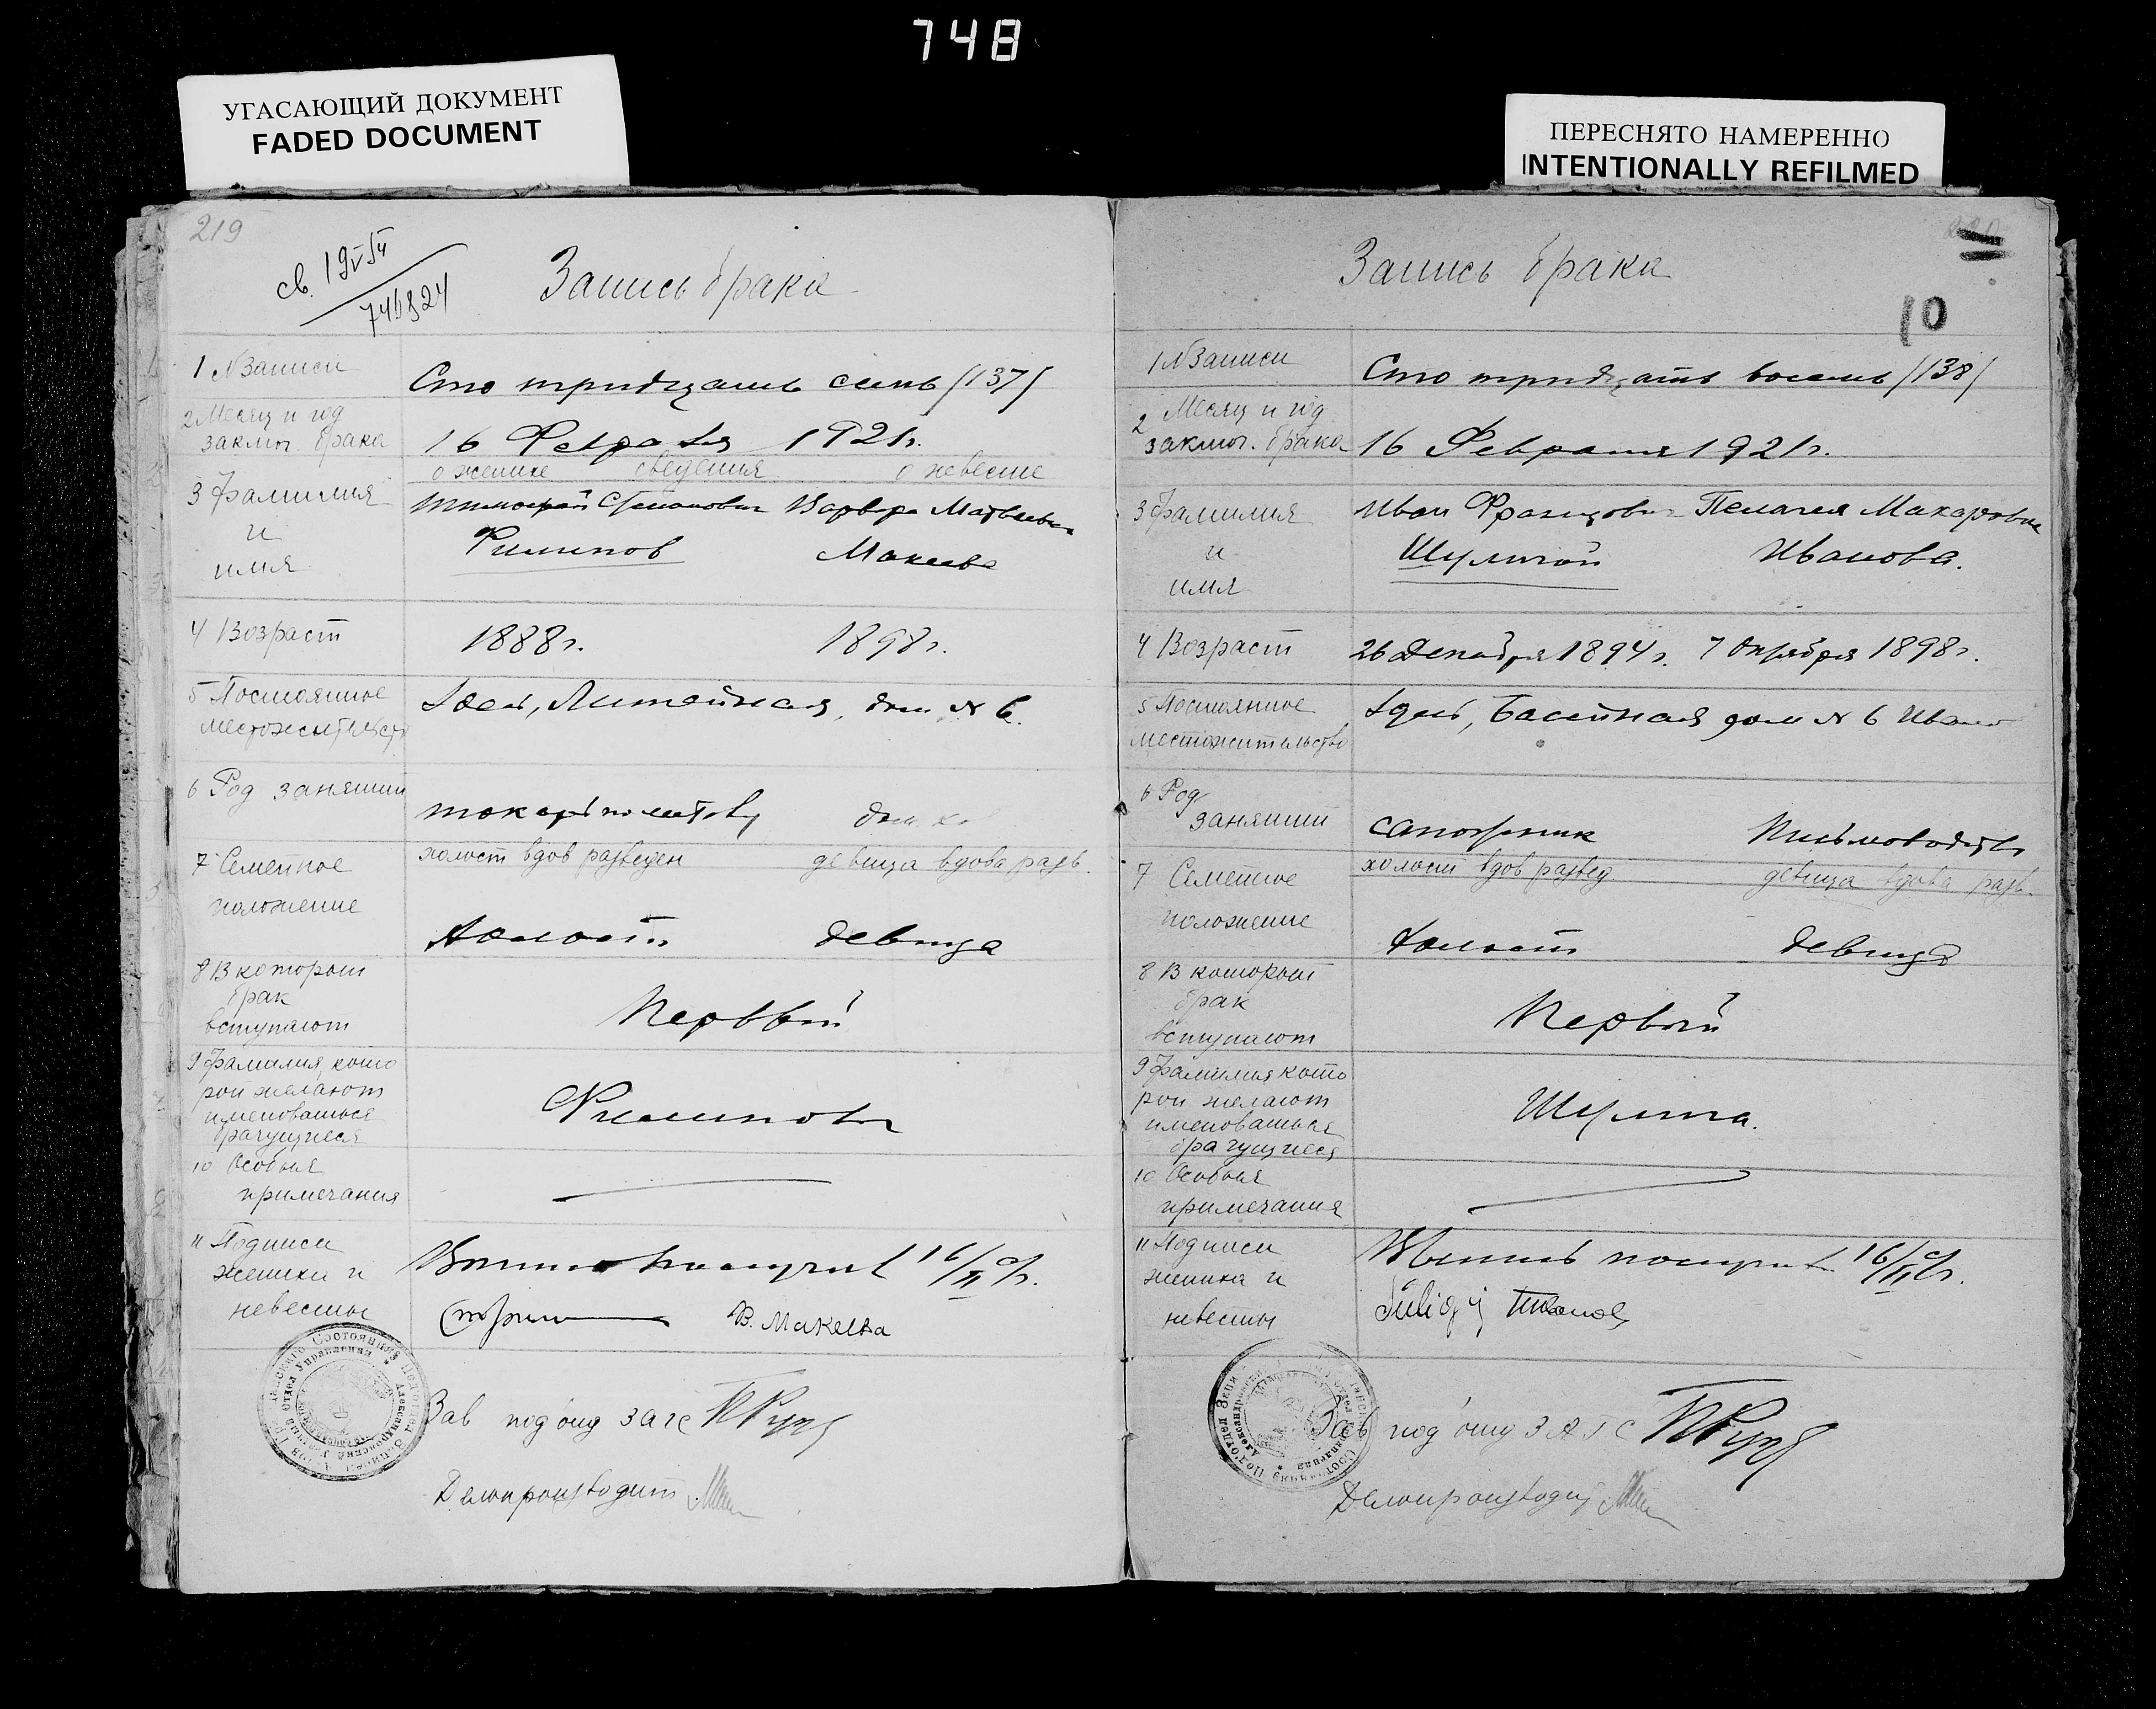 748
УГАСАЮЩИЙ ДОКУМЕНТ
FADED DOCUMENT
ПЕРЕСНЯТО НАМЕРЕННО
INTENTIONALLY REFILMED
219
св. 19 VI 54
Запись брака
1 N Записи
Сто тридцать семь /137/
2 Месяц и год
заключ. брака
16 Февраля 1921г.
о женихе сведения о невесте
3 Фамилия
и
имя
Тимофей Степанович Варвара Матвеевна
Филипов Макеева
4 Возраст
1888г. 1898г.
5 Постоянное
местожительство
Здесь, Литейная, дом N 6.
6 Род занятии
токарь по металу дом. хо
7 Семейное
положение
холост вдов разведен девица вдова разв.
Холост девица
8 В которыи
брак
вступают
Первый
9 Фамилия, кото
рои желают
именоваться
брачущиеся
Филиповы
10 Особыя
примечания
11 Подписи
жениха и
невесты
получил 16/II с/г.
В. Макеева
Зав под'отд загс
Делопроизводит
Запись брака
10
1 N Записи
Сто тридцать восемь /138/
2 Месяц и год
заключ. брака
16 Февраля 1921г.
3 Фамилия
и
имя
Иван Францович Пелагея Макаровна
Шулигой Иванова.
4 Возраст
26 Декабря 1894г. 7 Октября 1898г.
5 Постоянное
местожительство
Здесь, Басейная дом N 6
6 Род
занятии
сапожник
7 Семейное
положение
холост вдов развед. девица вдова разв.
Холост девица
8 В которыи
брак
вступают
Первый
9 Фамилия кото
рои желают
именоваться
брачущиеся
10 Особыя
примечания
11 Подписи
жениха и
невесты
Выпись получил 16/II с/г.
Зав под'отд ЗАГС
Делопроизводит